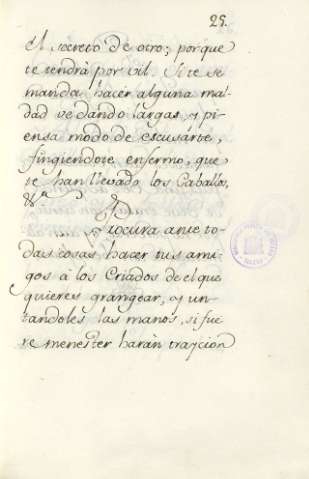 25.
el secreto de otro; porque
te tendrá por vil. Si te se
manda hacer alguna mal
dad ve dando largas, y pi
ensa modo de escusarte,
fingiendote enfermo, que
te han llevado los Caballos,
&.ª
Procura ante to
das cosas, hacer tus ami
gos á los Criados de el que
quieres grangear, y un
tandoles las manos, si fue
re menester harán traycion